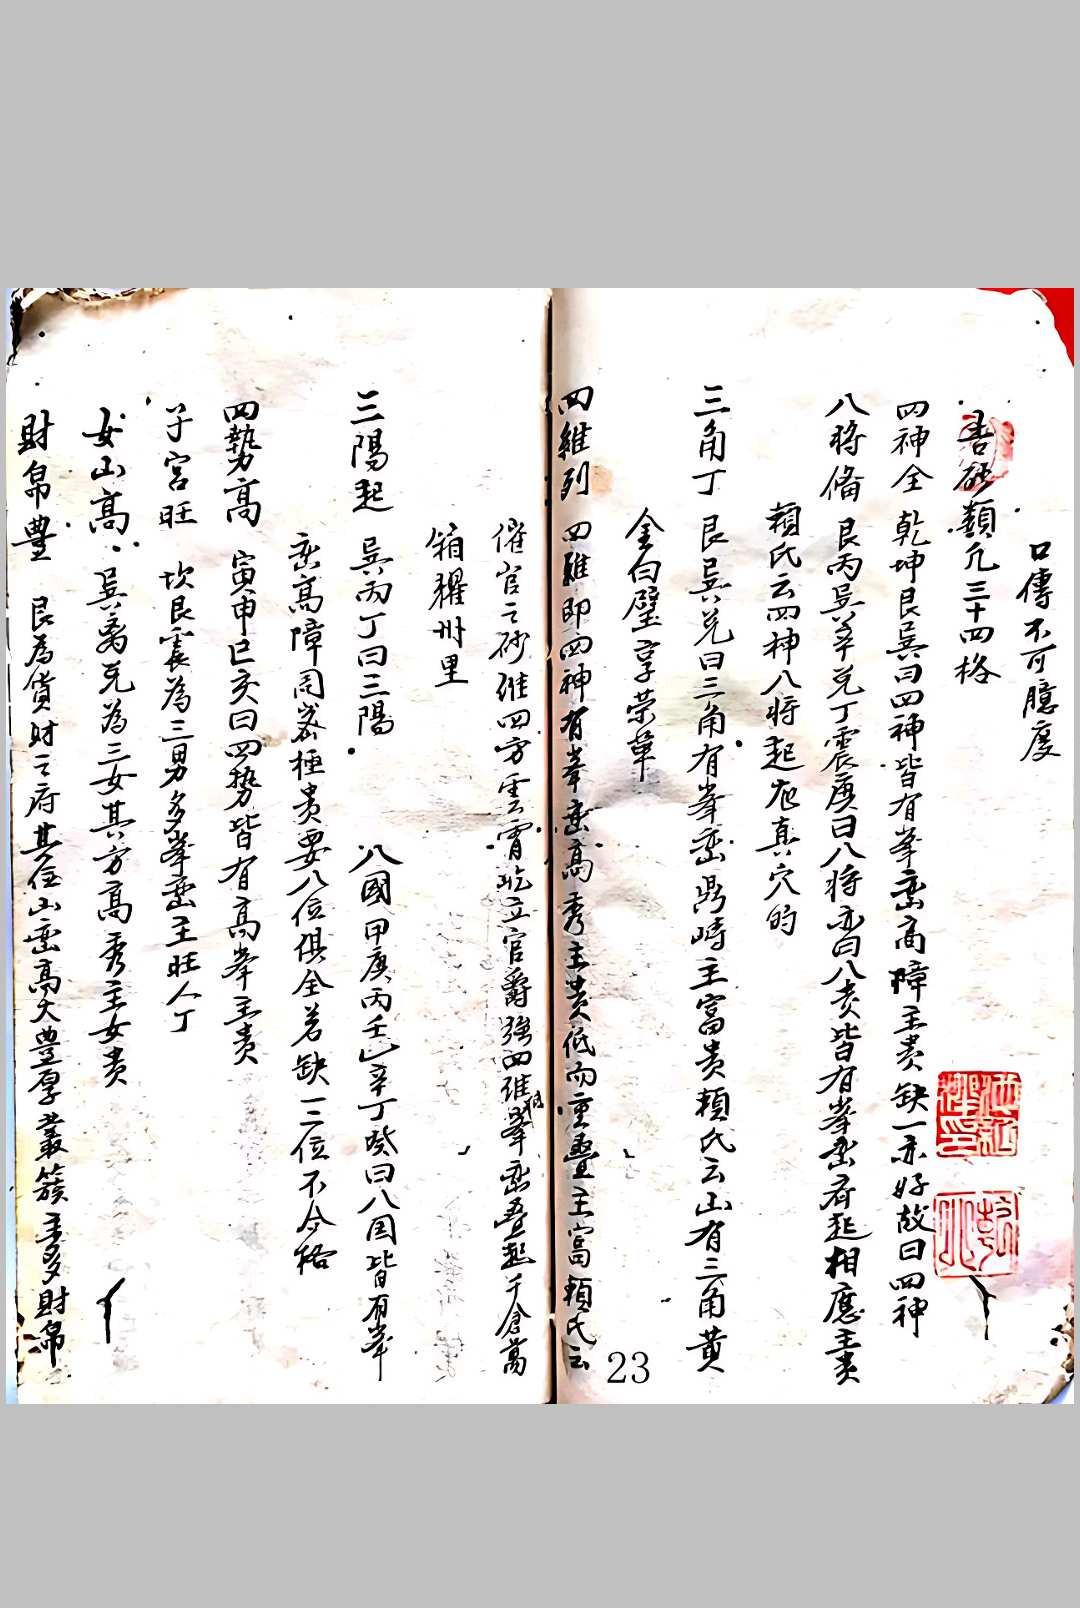 口傳不可臆度
善砂類凢三十四格
四神全 乾坤艮巽曰四神皆有峯巒高障主贵缺一亦好故曰四神
八将俻 艮丙巽辛兌丁震庚曰八将亦曰八贵皆有峯巒齐起相應主贵
頼氏云四神八将起应真穴的
三角丁 艮巽兌曰三角有峯巒鼎峙主富贵頼氏云山有三角黄
金白璧享荣華
四維列 四維即四神有峯巒高秀主贵低而重疊主富頼氏云
催官之砂維四方雲霄屹立官爵强四維峯巒叠起千倉萬
箱耀州里
三陽起 巽丙丁曰三陽 八國甲庚丙壬乙辛丁癸曰八国皆有峯
巒高障周密極贵要八位俱全若缺一二位不合格
四勢高 寅申巳亥曰四势皆有高峯主贵
子宮旺 坎艮震為三男多峯巒主旺人丁
女山高 巽离兌為三女其方高秀主女贵
財帛豊 艮為货财之府其位山巒高大豊厚叢簇主多財帛
23